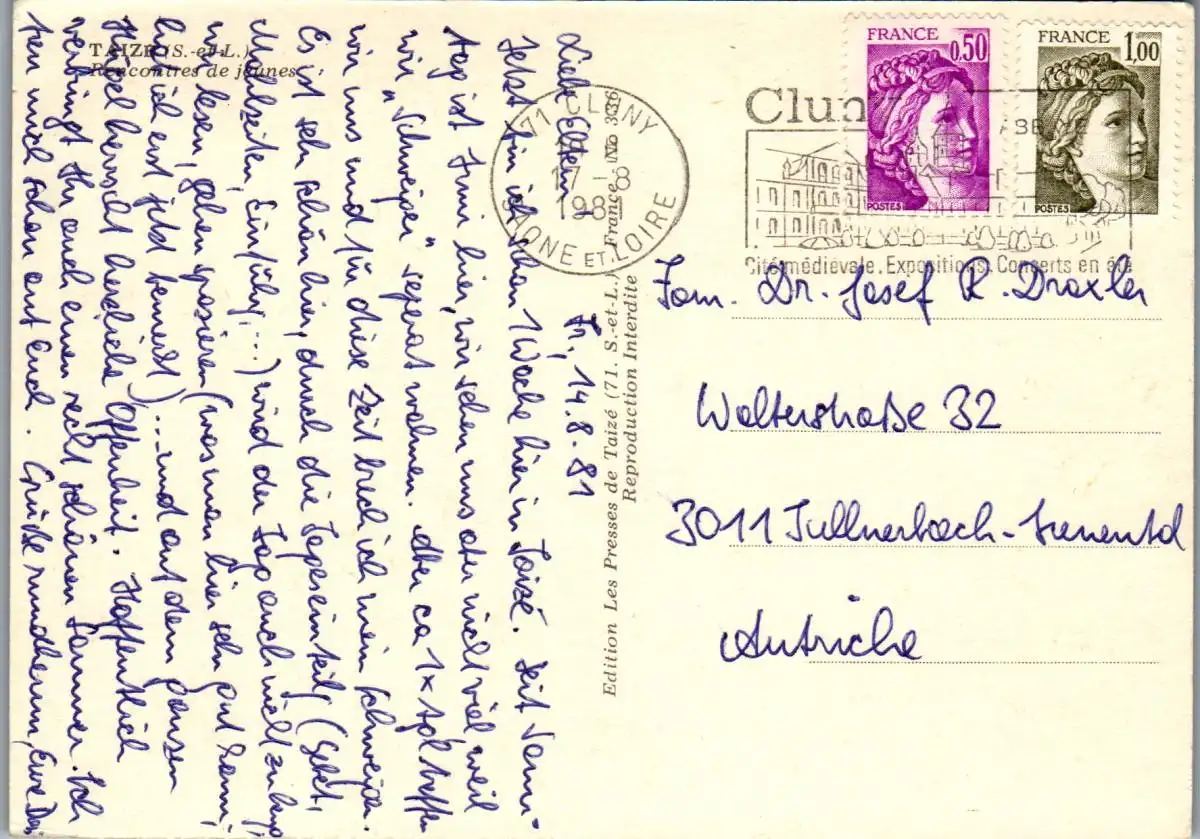 TAIZÉ (S.-et-L.)
Rencontres de jeunes
Fr, 14.8.81
Liebe Eltern!
Jetzt bin ich schon 1 Woche hier in Taizé. Seit Sams-
tag ist Irmi hier, wir sehen uns aber nicht viel, weil
wir „Schweiger" separat wohnen. Aber ca 1x tgl. treffen
wir uns und für diese Zeit brech ich mein Schweigen.
Es ist sehr schön hier, durch die Tageseinteilg (Gebet,
Mahlzeiten, Einführg, ...) wird der Tag auch nicht zu lang,
wir lesen, gehen spazieren (was man hier sehr gut kann,
hab ich erst jetzt bemerkt) ... und auf dem ganzen
Hügel herrscht herzliche Offenheit. Hoffentlich
verbringt Ihr auch einen recht schönen Sommer. Ich
freu mich schon auf Euch. Grüße rundherum, Eure
Edition Les Presses de Taizé (71. S.-et-L.) France. No 336
Reproduction Interdite
71 CLUNY
17 - 8
1981
SAONE ET LOIRE
Clun
Cité médiévale. Expositions. Concerts en été
FRANCE 0,50
POSTES
FRANCE 1,00
POSTES
Fam. Dr. Josef R. Draxler
Walterstraße 32
3011 Tullnerbach-Irenental
Autriche